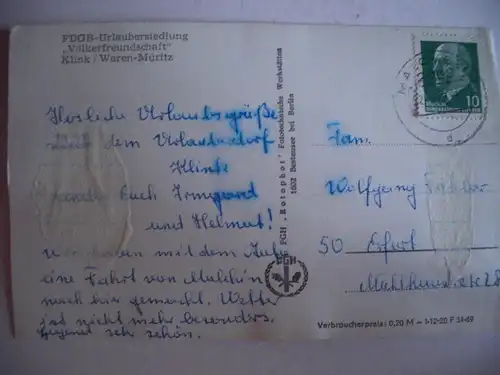 FDGB-Urlaubersiedlung
„Völkerfreundschaft"
Klink/Waren-Müritz
Herzliche Urlaubsgrüße
dem Urlauberdorf
Klink
Euch Irmgard
und Helmut!
wir haben mit dem Auto
eine Fahrt von Malchin
nach hier gemacht. Wetter
ist nicht mehr besonders.
Gegend sehr schön.
PGH „Rotophot" Fototechnische Werkstätten
1602 Bestensee bei Berlin
PGH
10
Fam.
Wolfgang
50 Erfurt
28
Verbraucherpreis: 0,20 M – 1-12-20 F 34-69